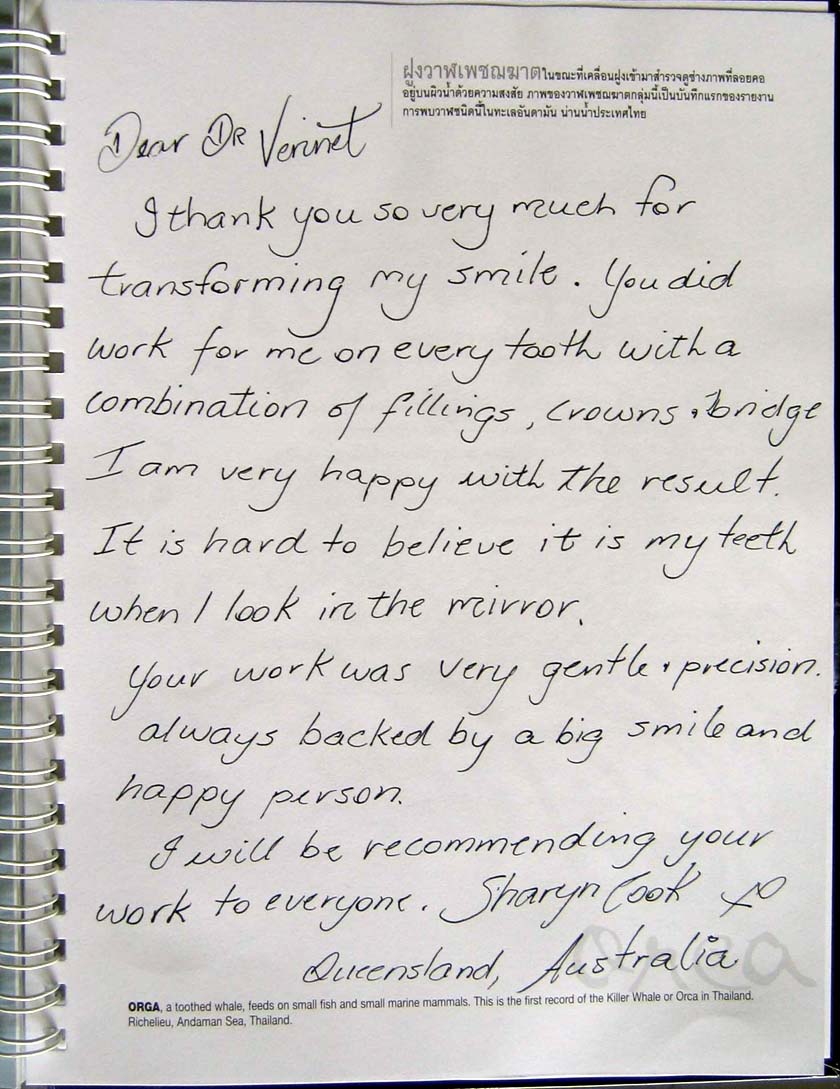 ฝูงวาฬเพชฌฆาตในขณะที่เคลื่อนฝูงเข้ามาสำรวจดูช่างภาพที่ลอยคอ
อยู่บนผิวน้ำด้วยความสงสัย ภาพของวาฬเพชฌฆาตกลุ่มนี้เป็นบันทึกแรกของรายงาน
การพบวาฬชนิดนี้ในทะเลอันดามัน น่านน้ำประเทศไทย
Dear DR Verinet
I thank you so very much for
transforming my smile. You did
work for me on every tooth with a
combination of fillings, crowns + bridge
I am very happy with the result.
It is hard to believe it is my teeth
when I look in the mirror.
Your work was very gentle + precision.
always backed by a big smile and
happy person.
I will be recommending your
work to everyone. Sharyn Cook xo
Queensland, Australia
Orca
ORGA, a toothed whale, feeds on small fish and small marine mammals. This is the first record of the Killer Whale or Orca in Thailand.
Richelieu, Andaman Sea, Thailand.